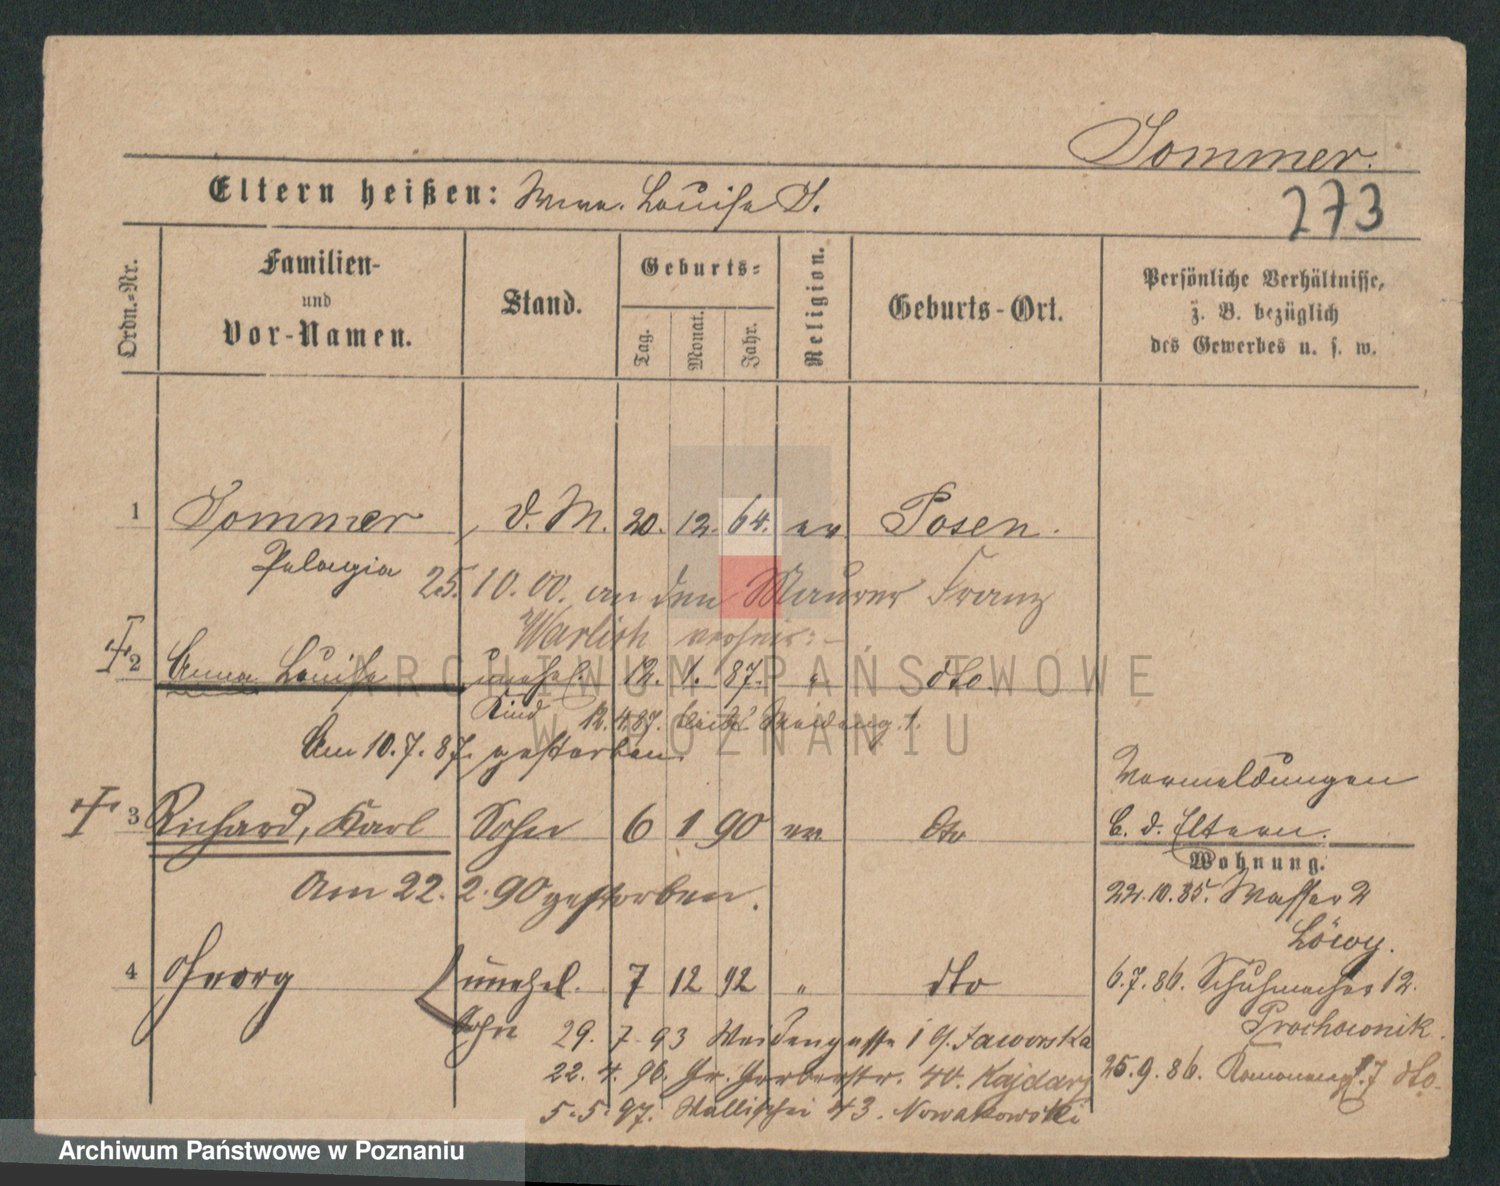 Sommer.
Eltern heißen: Wwe. Louise S.
273
Ordn.-Nr.
Familien-
und
Vor-Namen.
Stand.
Geburts-
Tag.
Monat.
Jahr.
Religion.
Geburts-Ort.
Persönliche Verhältnisse,
z. B. bezüglich
des Gewerbes u. s. w.
1 Sommer, d. M. 20. 12. 64. ev Posen.
Pelagia
25. 10. 00. an den Maurer Franz
Warlich verheir:
2 Anna Louise unehel. 12. 1. 87. " dto.
Kind
12. 4. 87.
Am 10. 7. 87. gestorben.
3 Richard, Karl Sohn 6 1 90 ev dto
Am 22. 2. 90 gestorben.
4 Georg unehel. 7 12 92 " dto
Sohn
29. 7. 93 Weidengasse 1 b/ Jaworska
22. 4. 96. Gr. Gerberstr. 40. Kajdary
5. 5. 97. Wallischei 43. Nowakowski
Vormeldungen
b. d. Eltern.
Wohnung.
22. 10. 85. Wasser 2
Löwy.
6. 7. 86. Schuhmacher 12.
Prochownik.
25. 9. 86. 17 dto.
ARCHIWUM PAŃSTWOWE
W POZNANIU
Archiwum Państwowe w Poznaniu